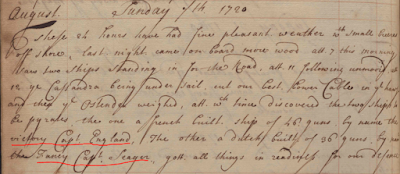 August. Sunday 7th 1720
These 24 hours have had fine pleasant weather wth small breezes
off shore, last night came on board more wood att 7 this morning
saw two ships standing in for the Road, att 11 following unmoord
or ye Cassandra being under sail cut our best bower Cables in ye hawse
and then ye Ostender weighed, att wch time discovered the two ships to
be pyrates the one a french built ship of 46 guns by name the
victory Capt. England, The other a dutch built of 36 guns by name
the Fancy Capt. Seager, gott all things in readiness for our defence